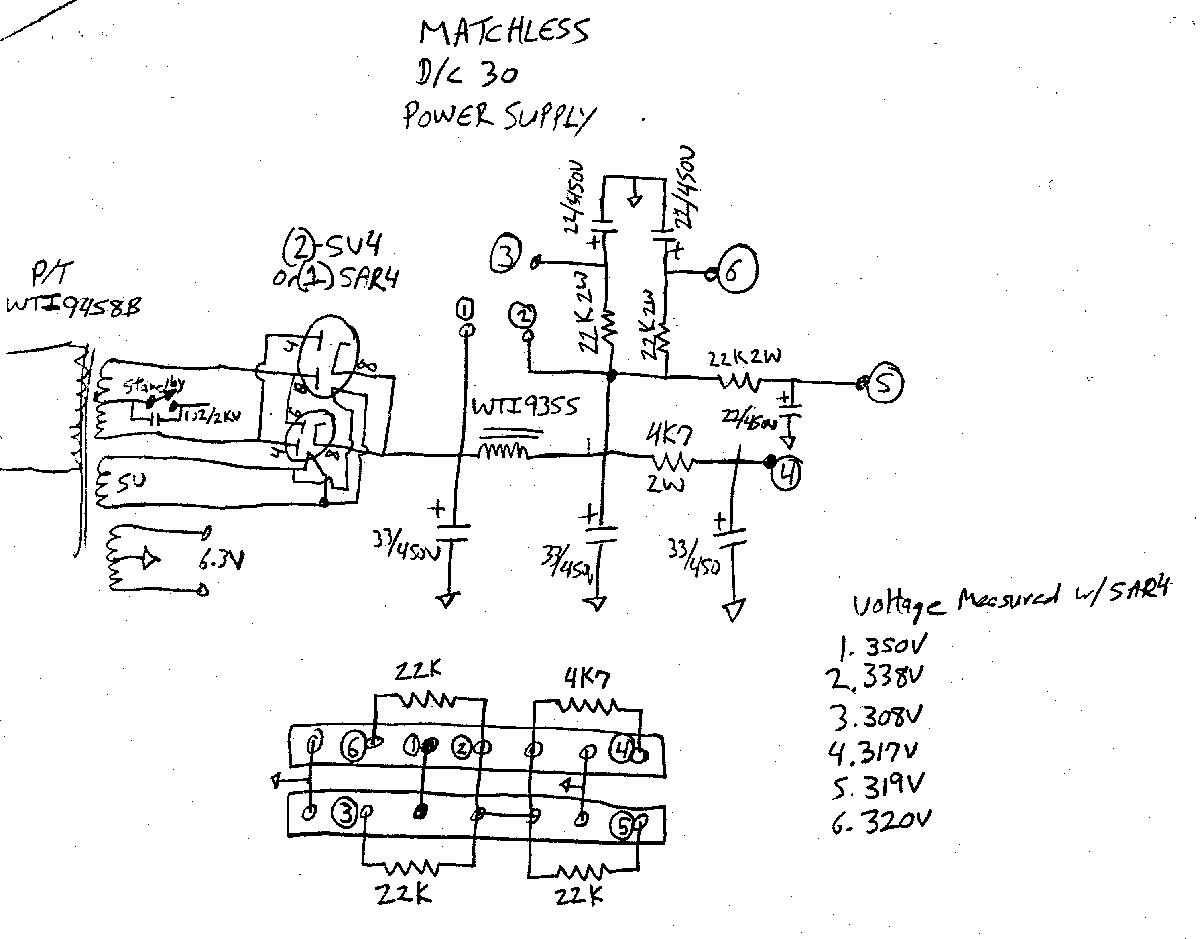 MATCHLESS
D/C 30
POWER SUPPLY
22/450V
22/450V
3
6
(2)-5U4
or (1) 5AR4
P/T
WTI9458B
1
2
22K 2W
22K 2W
22K 2W
5
4
8
Standby
/2KV
22/450V
WTI9355
4K7
2W
4
4
8
5V
+
+
+
+
+
+
33/450V
33/450V
33/450
6.3V
Voltage Measured w/5AR4
1. 350V
2. 338V
3. 308V
4. 317V
5. 319V
6. 320V
22K
4K7
6
1
2
4
3
5
22K
22K